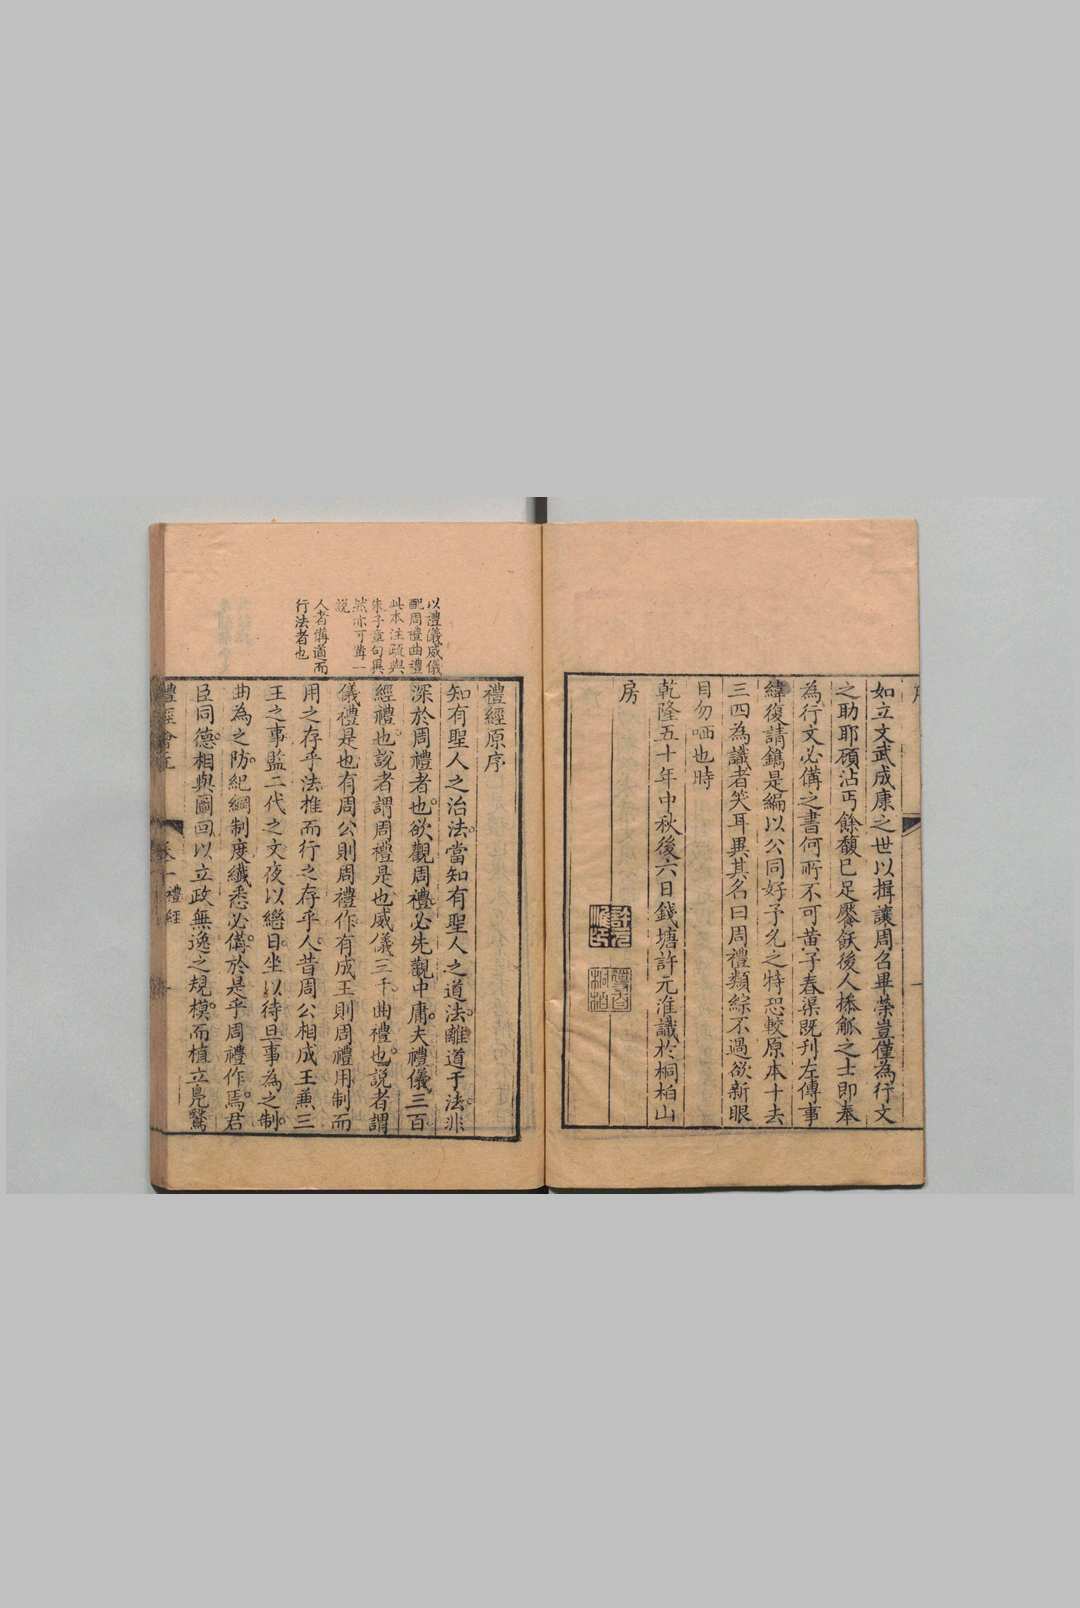 如立文武成康之世以揖讓周名畢榮豈僅為行文
之助耶碩沾丐餘馥已足饜飫後人搽觚之士即奉
為行文必俻之書何所不可黄子春渠既刊左傳事
緯復請鐫是編以公同好予允之特恐較原本十去
三四為識者笑耳異其名曰周禮類綜不過欲新眼
目勿哂也時
乾隆五十年中秋後六日錢塘許元淮識於桐柏山
房
禮經原序
知有聖人之治法當知有聖人之道法離道于法非
深於周禮者也欲觀周禮必先觀中庸夫禮儀三百
經禮也說者謂周禮是也威儀三千曲禮也說者謂
儀禮是也有周公則周禮作有成王則周禮用制而
用之存乎法推而行之存乎人昔周公相成王兼三
王之事監二代之文夜以繼日坐以待旦事為之制
曲為之防紀綱制度纖悉必俻於是乎周禮作焉君
臣同德相與圖回以立政無逸之規模而植立鳧鷖
以禮儀威儀
配周禮曲禮
此本注疏與
朱子章句異
然亦可備一
說
人者俻道而
行法者也
禮經會元
卷一
禮經